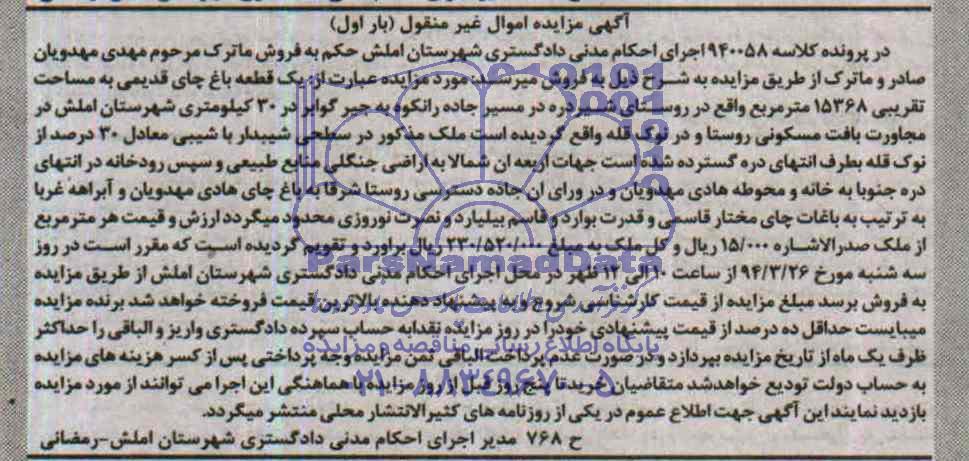 آگهی مزایده اموال غیر منقول (بار اول)
در پرونده کلاسه ۹۴۰۰۵۸ اجرای احکام مدنی دادگستری شهرستان املش حکم به فروش ماترک مرحوم مهدی مهدویان
صادر و ماترک از طریق مزایده به شرح ذیل به فروش میرسد: مورد مزایده عبارت از یک قطعه باغ چای قدیمی به مساحت
تقریبی ۱۵۳۶۸ مترمربع واقع در روستای شیردره در مسیر جاده رانکوه به جیر گوابر در ۳۰ کیلومتری شهرستان املش در
مجاورت بافت مسکونی روستا و در نوک قله واقع گردیده است ملک مذکور در سطحی شیبدار با شیبی معادل ۳۰ درصد از
نوک قله بطرف انتهای دره گسترده شده است جهات اربعه ان شمالا به اراضی جنگلی منابع طبیعی و سپس رودخانه در انتهای
دره جنوبا به خانه و محوطه هادی مهدویان و در ورای ان جاده دسترسی روستا شرقا به باغ چای هادی مهدویان و آبراهه غربا
به ترتیب به باغات چای مختار قاسمی و قدرت بوارد و قاسم بیلیارد و نصرت نوروزی محدود میگردد ارزش و قیمت هر متر مربع
از ملک صدرالاشاره ۱۵/۰۰۰ ریال و کل ملک به مبلغ ۲۳۰/۵۲۰/۰۰۰ ریال براورد و تقویم گردیده است که مقرر است در روز
سه شنبه مورخ ۹۴/۳/۲۶ از ساعت ۱۰ الی ۱۲ ظهر در محل اجرای احکام مدنی دادگستری شهرستان املش از طریق مزایده
به فروش برسد مبلغ مزایده از قیمت کارشناسی شروع و به پیشنهاد دهنده بالاترین قیمت فروخته خواهد شد برنده مزایده
میبایست حداقل ده درصد از قیمت پیشنهادی خود را در روز مزایده نقدا به حساب سپرده دادگستری واریز و الباقی را حداکثر
ظرف یک ماه از تاریخ مزایده بپردازد و در صورت عدم پرداخت الباقی ثمن مزایده وجه پرداختی پس از کسر هزینه های مزایده
به حساب دولت تودیع خواهد شد متقاضیان خرید تا پنج روز قبل از روز مزایده با هماهنگی این اجرا می توانند از مورد مزایده
بازدید نمایند این آگهی جهت اطلاع عموم در یکی از روزنامه های کثیرالانتشار محلی منتشر میگردد.
ح ۷۶۸ مدیر اجرای احکام مدنی دادگستری شهرستان املش-رمضانی
ParsNamadData
پایگاه اطلاع رسانی مناقصه و مزایده
۰۲۱-۸۸۳۴۹۶۷۰-۵